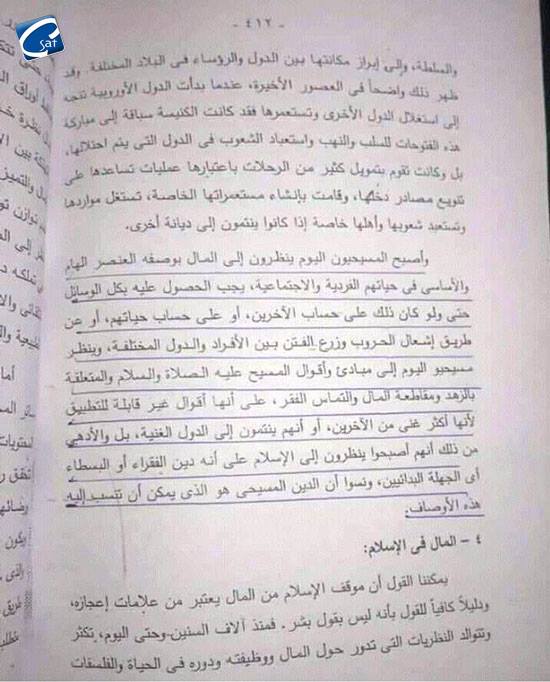 Sat
- ٤١٢ -
والسلطة، وإلى إبراز مكانتها بين الدول والرؤساء فى البلاد المختلفة. وقد
ظهر ذلك واضحاً فى العصور الأخيرة، عندما بدأت الدول الأوروبية تتجه
إلى استغلال الدول الأخرى وتستعمرها فقد كانت الكنيسة سباقة إلى مباركة
هذه الفتوحات للسلب والنهب واستعباد الشعوب فى الدول التى يتم احتلالها،
بل وكانت تقوم بتمويل كثير من الرحلات باعتبارها عمليات تساعدها على
تنويع مصادر دخلها، وقامت بإنشاء مستعمراتها الخاصة، تستغل مواردها
وتستعبد شعوبها وأهلها خاصة إذا كانوا ينتمون إلى ديانة أخرى.
وأصبح المسيحيون اليوم ينظرون إلى المال بوصفه العنصر الهام
والأساسى فى حياتهم الفردية والاجتماعية، يجب الحصول عليه بكل الوسائل
حتى ولو كان ذلك على حساب الآخرين، أو على حساب حياتهم، أو عن
طريق إشعال الحروب وزرع الفتن بين الأفراد والدول المختلفة، وينظر
مسيحيو اليوم إلى مبادئ وأقوال المسيح عليه الصلاة والسلام والمتعلقة
بالزهد ومقاطعة المال والتماس الفقر، على أنها أقوال غير قابلة للتطبيق
لأنها أكثر غنى من الآخرين، أو أنهم ينتمون إلى الدول الغنية، بل والأدهى
من ذلك أنهم أصبحوا ينظرون إلى الإسلام على أنه دين الفقراء أو البسطاء
أى الجهلة البدائيين، ونسوا أن الدين المسيحى هو الذى يمكن أن تنتسب إليه
هذه الأوصاف.
٤ - المال فى الإسلام:
يمكننا القول أن موقف الإسلام من المال يعتبر من علامات إعجازه،
ودليلاً كافياً للقول بأنه ليس بقول بشر. فمنذ آلاف السنين وحتى اليوم، تكثر
وتتوالد النظريات التى تدور حول المال ووظيفته ودوره فى الحياة والفلسفات